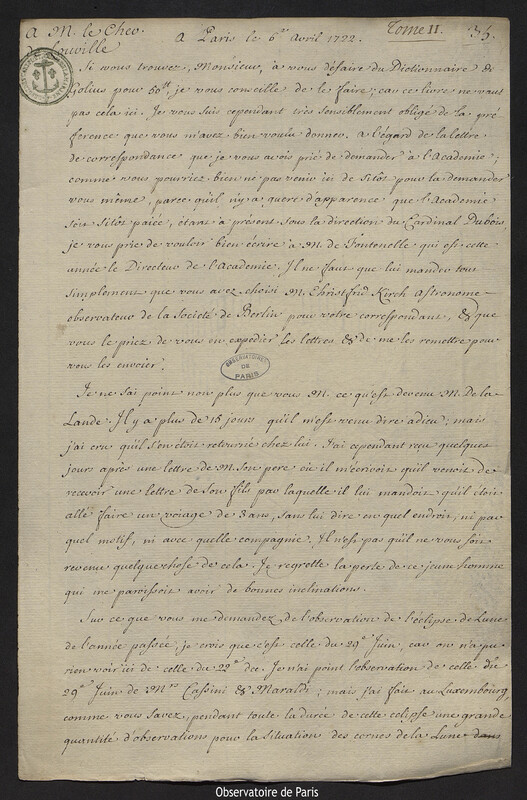 A M. le Chev.
de Louville
A Paris le 6e Avril 1722. Tome II. 35.
Si vous trouvez, Monsieur, à vous défaire du Dictionaire de
Golius pour 50tt, je vous conseille de le faire; car ce livre ne vaut
pas cela ici. Je vous suis cependant très sensiblement obligé de la pré
ference que vous m'avez bien voulu donner. A l'égard de la lettre
de correspondance que je vous avois prié de demander à l'Academie;
comme vous pourriez bien ne pas venir ici de sitôt pour la demander
vous même, parce qu'il n'y a guere d'apparence que l'Academie
soit sitôt païée, étant à present sous la direction du Cardinal Dubois,
je vous prie de vouloir bien écrire à M. de Fontenelle qui est cette
année le Directeur de l'Academie. Il ne faut que lui mander tout
simplement que vous avez choisi M. Christfrid Kirch Astronome
observateur de la Societé de Berlin pour votre correspondant, & que
vous le priez de vous en expedier les lettres & de me les remettre pour
vous les envoier.
OBSERVATOIRE
DE
PARIS
Je ne sai point non plus que vous M. ce qu'est devenu M. De la
Lande. Il y a plus de 15 jours qu'il m'est venu dire adieu; mais
j'ai cru qu'il s'en étoit retourné chez lui. J'ai cependant reçu quelques
jours après une lettre de M. son pere où il m'écrivoit qu'il venoit de
recevoir une lettre de son fils par laquelle il lui mandoit qu'il étoit
allé faire un voiage de 3 ans, sans lui dire en quel endroit, ni par
quel motif, ni avec quelle compagnie. Il n'est pas qu'il ne vous soit
revenu quelque chose de cela. Je regrette la perte de ce jeune homme
qui me paroissoit avoir de bonnes inclinations.
Sur ce que vous me demandez de l'observation de l'éclipse de Lune
de l'année passée; je crois que c'est celle du 29e Juin, car on n'a pu
rien voir ici de celle du 22e dec. Je n'ai point l'observation de celle du
29e Juin de Mrs Cassini & Maraldi; mais j'ai fait au Luxembourg,
comme vous savez, pendant toute la durée de cette eclipse une grande
quantité d'observations pour la situation des cornes de la Lune dans
Observatoire de Paris